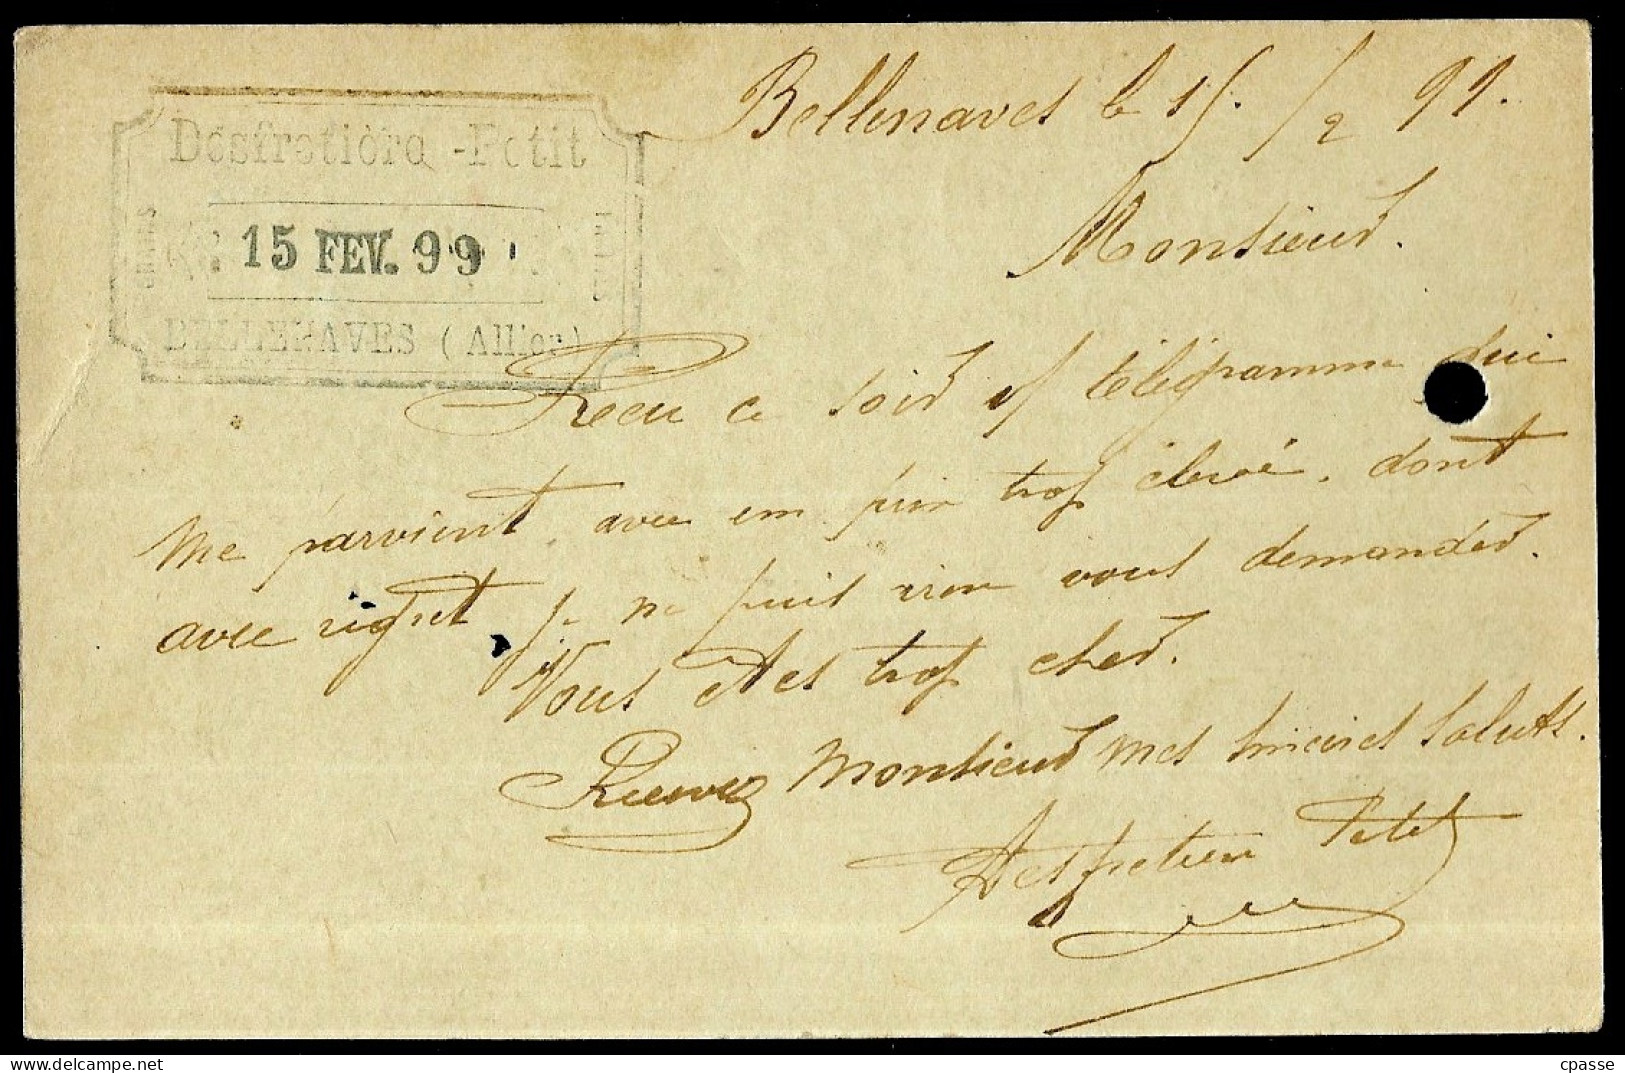 Bellenaves le 15. / 2 99.
Desfretière - Petit
GRAINS
15 FEV. 99
FARINES
BELLENAVES (Allier)
Monsieur.
Recu ce soir v/ télégramme qui
me parvient, avec un prix trop élevé, dont
avec regret je ne puis rien vous demander.
Vous êtes trop cher.
Recevez Monsieur mes sincères saluts.
Petit
cpasse